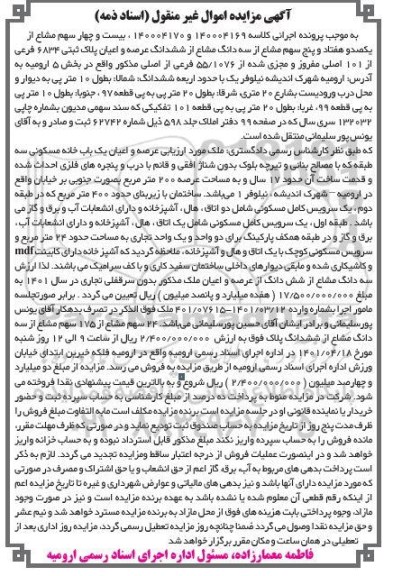 آگهی مزایده اموال غیر منقول (اسناد ذمه)
به موجب پرونده اجرائی کلاسه ۱۴۰۰۰۴۱۶۹ و ۱۴۰۰۰۴۱۷۰ ، بیست و چهار سهم مشاع از
یکصدو هفتاد و پنج سهم مشاع از سه دانگ مشاع از ششدانگ عرصه و اعیان پلاک ثبتی ۶۸۳۴ فرعی
از ۱۰۱ اصلی مفروز و مجزی شده از ۵۵/۱۰۷۶ فرعی از اصلی مذکور واقع در بخش ۵ ارومیه به
آدرس: ارومیه شهرک اندیشه نیلوفر یک با حدود اربعه ششدانگ: شمالا: بطول ۱۰ متر پی به دیوار و
محل درب ورودیست بشارع ۲۰ متری، شرقا: بطول ۲۰ متر پی به پی قطعه ۹۷، جنوبا: بطول ۱۰ متر پی
به پی قطعه ۹۹، غربا: بطول ۲۰ متر پی به پی قطعه ۱۰۱ تفکیکی که سند سهمی مدیون بشماره چاپی
۱۳۲۰۳۲ سری سال که در صفحه ۹۹ دفتر املاک جلد ۵۹۸ ذیل شماره ۶۲۷۴۲ ثبت و صادر و به آقای
یونس پور سلیمانی منتقل شده است.
که طبق نظر کارشناس رسمی دادگستری، ملک مورد ارزیابی عرصه و اعیان یک باب خانه مسکونی سه
طبقه که با مصالح بنائی و تیرچه بلوک بدون شناژ افقی و قائم با درب و پنجره های فلزی احداث شده
و قدمت ساخت آن حدود ۱۷ سال و به مساحت عرصه ۲۰۰ متر مربع بصورت جنوبی بر خیابان واقع
در ارومیه - شهرک اندیشه ، نیلوفر ۱ می‌باشد. ساختمان با زیربنای حدود ۴۰۰ متر مربع که در طبقه
دوم، یک سرویس کامل مسکونی شامل دو اتاق، هال، آشپزخانه و دارای انشعابات آب و برق و گاز می
باشد . طبقه اول ، یک سرویس کامل مسکونی شامل یک اتاق ، هال ، آشپزخانه و دارای انشعابات آب ،
برق و گاز و در طبقه همکف پارکینگ برای دو واحد و یک واحد تجاری به مساحت حدود ۲۴ متر مربع و
سرویس مسکونی کوچک با یک اتاق و هال و آشپزخانه ، ملاحظه گردید که آشپزخانه دارای کابینت mdf
و کاشیکاری شده و مابقی دیوارهای داخلی ساختمان سفید کاری و با کف سرامیک می باشند. لذا ارزش
سه دانگ مشاع از شش دانگ از عرصه و اعیان ملک مذکور بدون سرقفلی تجاری در سال ۱۴۰۱ به
مبلغ ۱۷/۵۰۰/۰۰۰/۰۰۰ ( هفده میلیارد و پانصد میلیون ) ریال تعیین می گردد . برابر صورتجلسه
مامور اجرا بشماره وارده ۴۰۱/۰۷۶۱۵-۱۴۰۱/۰۳/۱۲ ملک فوق الذکر در تصرف بدهکار آقای یونس
پورسلیمانی و برادر ایشان آقای حسین پورسلیمانی می‌باشد ۲۴ سهم مشاع از ۱۷۵ سهم مشاع از سه
دانگ مشاع از ششدانگ پلاک فوق به ارزش ۲/۴۰۰/۰۰۰/۰۰۰ ریال از ساعت ۹ الی ۱۲ روز شنبه
مورخ ۱۴۰۱/۰۴/۱۸ در اداره اجرای اسناد رسمی ارومیه واقع در ارومیه فلکه خیرین ابتدای خیابان
ورزش اداره اجرای اسناد رسمی ارومیه از طریق مزایده به فروش می رسد. مزایده از مبلغ دو میلیارد
و چهارصد میلیون ( ۲/۴۰۰/۰۰۰/۰۰۰ ) ریال شروع و به بالاترین قیمت پیشنهادی نقدا فروخته می
شود. شرکت در مزایده منوط به پرداخت ده درصد از مبلغ کارشناسی به حساب سپرده ثبت و حضور
خریدار یا نماینده قانونی او در جلسه مزایده است برنده مزایده مکلف است مابه التفاوت مبلغ فروش را
ظرف مدت پنج روز از تاریخ مزایده به حساب صندوق ثبت تودیع نماید و در صورتی که ظرف مهلت مقرر،
مانده فروش را به حساب سپرده واریز نکند مبلغ مذکور قابل استرداد نبوده و به حساب خزانه واریز
خواهد شد و در اینصورت عملیات فروش از درجه اعتبار ساقط ومزایده تجدید می گردد. لازم به ذکر
است پرداخت بدهی های مربوط به آب، برق، گاز اعم از حق انشعاب و یا حق اشتراک و مصرف در صورتی
که مورد مزایده دارای آنها باشد و نیز بدهی های مالیاتی و عوارض شهرداری و غیره تا تاریخ مزایده اعم
از اینکه رقم قطعی آن معلوم شده یا نشده باشد به عهده برنده مزایده است و نیز در صورت وجود
مازاد، وجوه پرداختی بابت هزینه های فوق از محل مازاد به برنده مزایده مسترد خواهد شد و نیم عشر
و حق مزایده نقدا وصول می گردد ضمنا چنانچه روز مزایده تعطیل رسمی گردد، مزایده روز اداری بعد از
تعطیلی در همان ساعت و مکان مقرر برگزار خواهد شد
فاطمه معمارزاده، مسئول اداره اجرای اسناد رسمی ارومیه